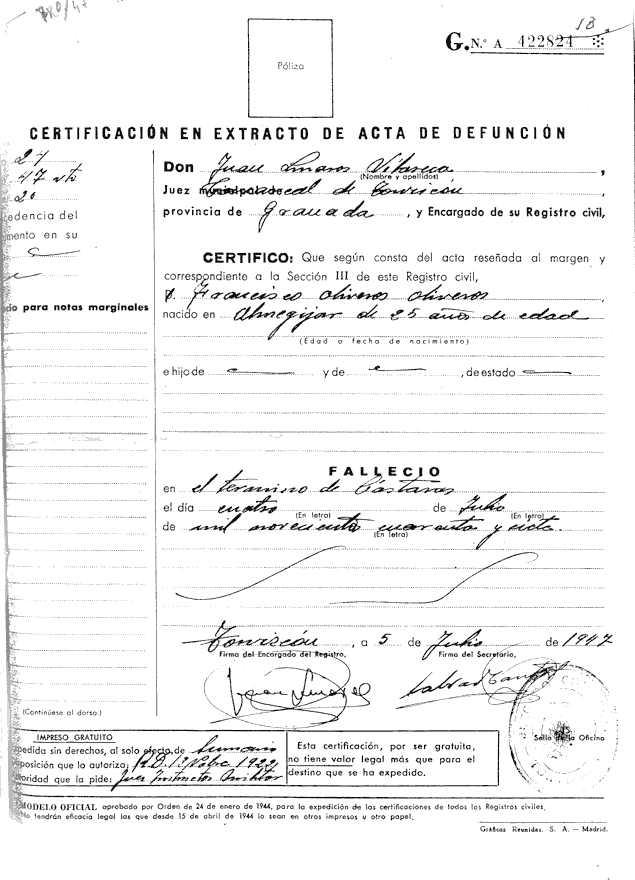 780/47
18
G. N.º A 422824
Póliza
CERTIFICACIÓN EN EXTRACTO DE ACTA DE DEFUNCIÓN
27
47 vto
20
cedencia del
mento en su
do para notas marginales
(Continúese al dorso.)
Don Juan Linares Vilaseca,
(Nombre y apellidos)
Juez Comarcal de Torviscón,
provincia de Granada, y Encargado de su Registro civil,
CERTIFICO: Que según consta del acta reseñada al margen y
correspondiente a la Sección III de este Registro civil,
D. Francisco Oliveros Oliveros,
nacido en Almegijar de 25 años de edad
(Edad o fecha de nacimiento)
e hijo de y de , de estado
FALLECIO
en el termino de Cástaras
el día cuatro de Julio
(En letra) (En letra)
de mil novecientos cuarenta y siete.
(En letra)
Torviscón, a 5 de Julio de 1947
Firma del Encargado del Registro, Firma del Secretario,
Juan Linares
Sello de la Oficina
IMPRESO GRATUITO
pedida sin derechos, al solo efecto de sumario
sposición que lo autoriza:
toridad que la pide: Juez Instructor Militar
Esta certificación, por ser gratuita,
no tiene valor legal más que para el
destino que se ha expedido.
MODELO OFICIAL aprobado por Orden de 24 de enero de 1944, para la expedición de las certificaciones de todos los Registros civiles.
No tendrán eficacia legal las que desde 15 de abril de 1944 lo sean en otros impresos u otro papel.
Gráficas Reunidas, S. A. — Madrid.